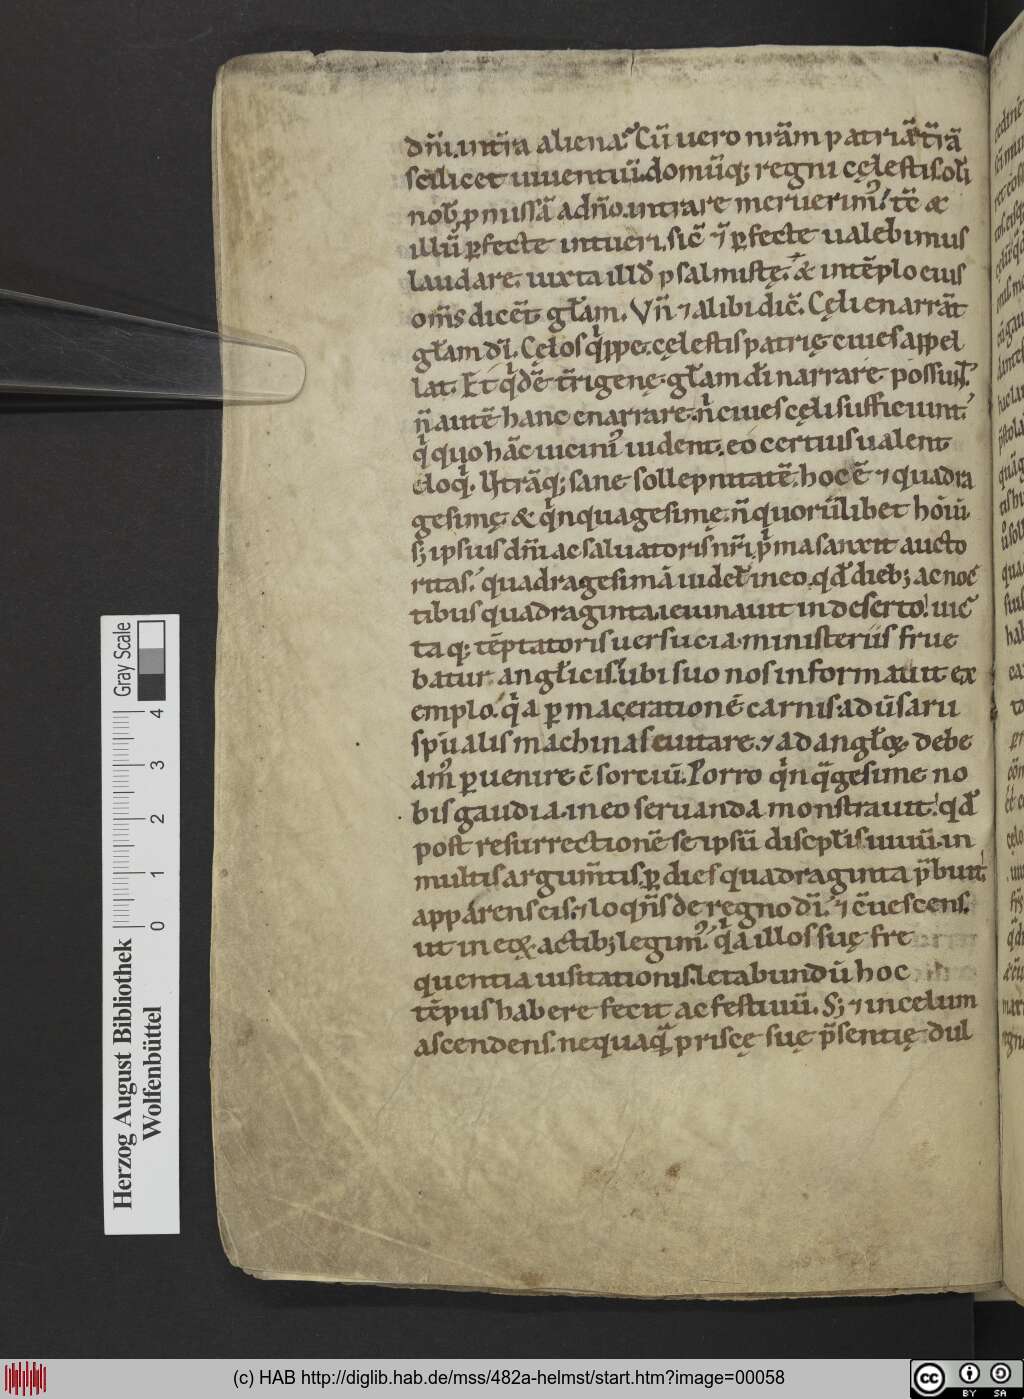 dn̄i. in tr̄a aliena? Cū uero nr̄am patriā tr̄ā
scilicet uiuentiū. domūq; regni cęlestis olī
nob̄ ꝓmissā ad n̄o. intrare meruerim᷒. tc̄ &
illū ꝑfecte intueri. sic̄ ⁊ ꝑfecte ualebimus
laudare. iuxta illđ psalmistę. & in tēplo eius
om̄s dicēt gl̄am. Vn̄ ⁊ alibi dic̄. Cęli enarrāt
gl̄am dī. Cęlos q̍ppe. cęlestis patrię ciues appel
lat. Et q̍dē tr̄rigenę gl̄am dī narrare possun̄t.
n̄ autē hanc enarrare. n̄ ciues cęli sufficiunt.
q̍ quo hāc uicini᷒ uident. eo certius ualent
eloq̍. Utrāq; sane sollēpnitatē. hoc ē ⁊ quadra
gesimę. & q̍nquagesimę. n̄ quorūlibet hoīū.
s; ipsius dn̄i ac saluatoris nr̄i p̍ma sanxit aucto
ritas. quadragesimā uidel̄ in eo. qđ dieb; ac noc
tibus quadraginta ieiunauit in deserto. uic
taq; tēptatoris uersucia. ministeriis frue
batur angl̄icis. ubi suo nos informauit ex
emplo. q̍a ꝑ macerationē carnis. aduersarii
spūalis machinas euitare. ⁊ ad angl̄oꝝ debe
am᷒ ꝑuenire c̄sortiū. Porro q̍nq̄gesime no
bis gaudia. in eo seruanda monstrauit. qđ
post resurrectionē se ipsū discipl̄is uiuū. in
multis argum̄tis. ꝑ dies quadraginta p̄buit
apparens eis. ⁊ loq̄ns de regno dī. ⁊ c̄uescens.
ut in eoꝝ actib; legim᷒. q̍a illos suę fre
quentia uisitationis. letabundū hoc
tēpus habere fecit ac festiuū. S; ⁊ in celum
ascendens. nequaq̄ priscę suę p̄sentię dul
Gray Scale
4
3
2
1
0
Herzog August Bibliothek
Wolfenbüttel
(c) HAB http://diglib.hab.de/mss/482a-helmst/start.htm?image=00058
cc BY SA